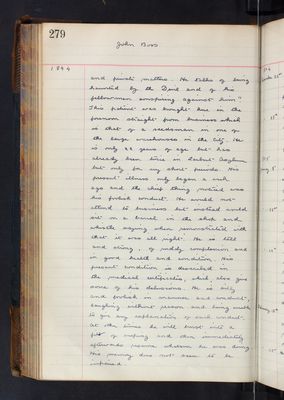 279
John Boss
1894
and private matters. He talks of being
haunted by the Devil and of his
fellowmen conspiring against him"
This patient was brought here in the
forenoon straight from business which
is that of a seedsman in one of
the large warehouses in the City. He
is only 22 years of age but has
already been twice in Larbert Asylum
but only for very short periods. His
present illness only began a week
ago and the chief thing noticed was
his foolish conduct. He would not
attend to business but instead would
sit on a barrel in the shop and
whistle saying when remonstrated with
that it was all right. He is tall
and strong, of ruddy complexion and
in good health and condition. His
present condition is described in
the medical certificates, which also give
some of his delusions. He is silly
and foolish in manner and conduct,
laughing without reason and being unable
to give any explanation of such conduct.
At other times he will burst into a
fit of weeping and then immediately
afterwards resume whatever he was doing
His memory does not seem to be
impaired.